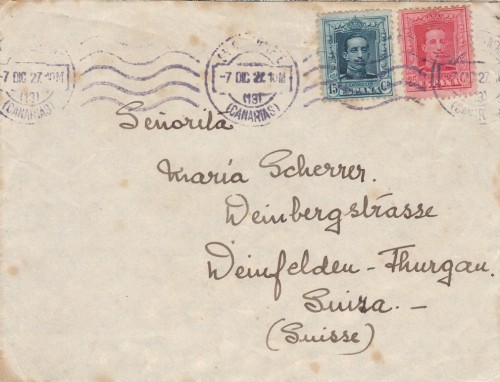 -7 DIC 27. 10M
(13)
(CANARIAS)
-7 DIC 27. 10M
(13)
(CANARIAS)
15 Cs
ESPAÑA
Señorita
María Scherrer.
Weinbergstrasse
Weinfelden - Thurgau.
Suiza. -
(Suisse)